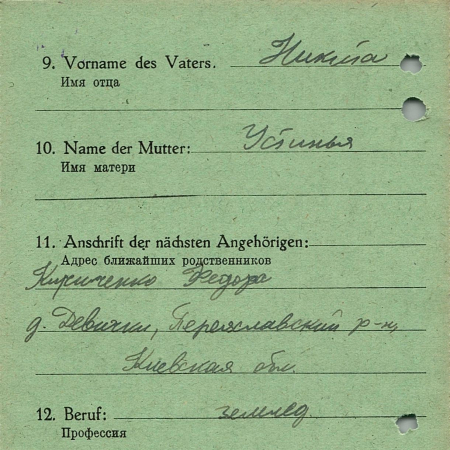 9. Vorname des Vaters. Никита
Имя отца
10. Name der Mutter: Устинья
Имя матери
11. Anschrift der nächsten Angehörigen:
Адрес ближайших родственников
Кириченко Федора
д. Девички, Переяславский р-н,
Киевская обл.
12. Beruf: землед.
Профессия